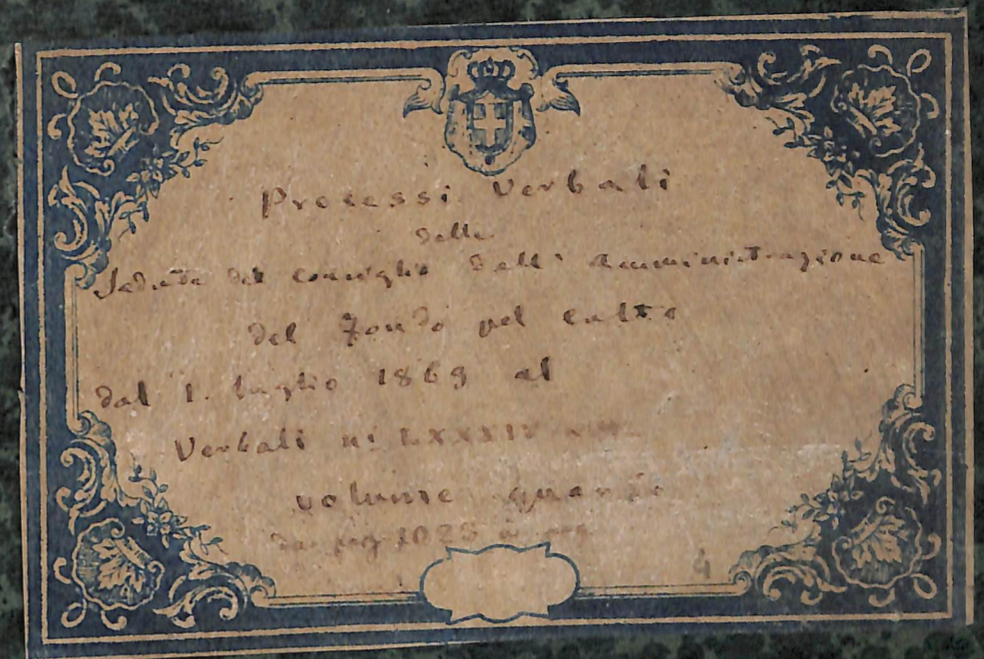 Processi Verbali
delle
Sedute del Consiglio dell' Amministrazione
del Fondo pel culto
dal 1. luglio 1869 al
Verbali ni LXXXIV
volume quarto
da pag 1023 a pag
4